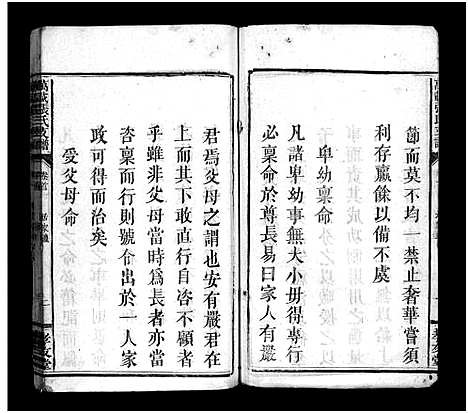 節而莫不均一禁止奢華嘗須
稍存贏餘以備不虞
卑幼稟命
凡諸卑幼事無大小毋得專行
必稟命於尊長易曰家人有嚴
君焉父母之謂也安有嚴君在
上而其下敢直行自恣不顧者
乎雖非父母當時為長者亦當
咨稟而行則號令出於一人家
政可得而治矣
受父母命
萬載張氏支譜
卷首
孝友堂